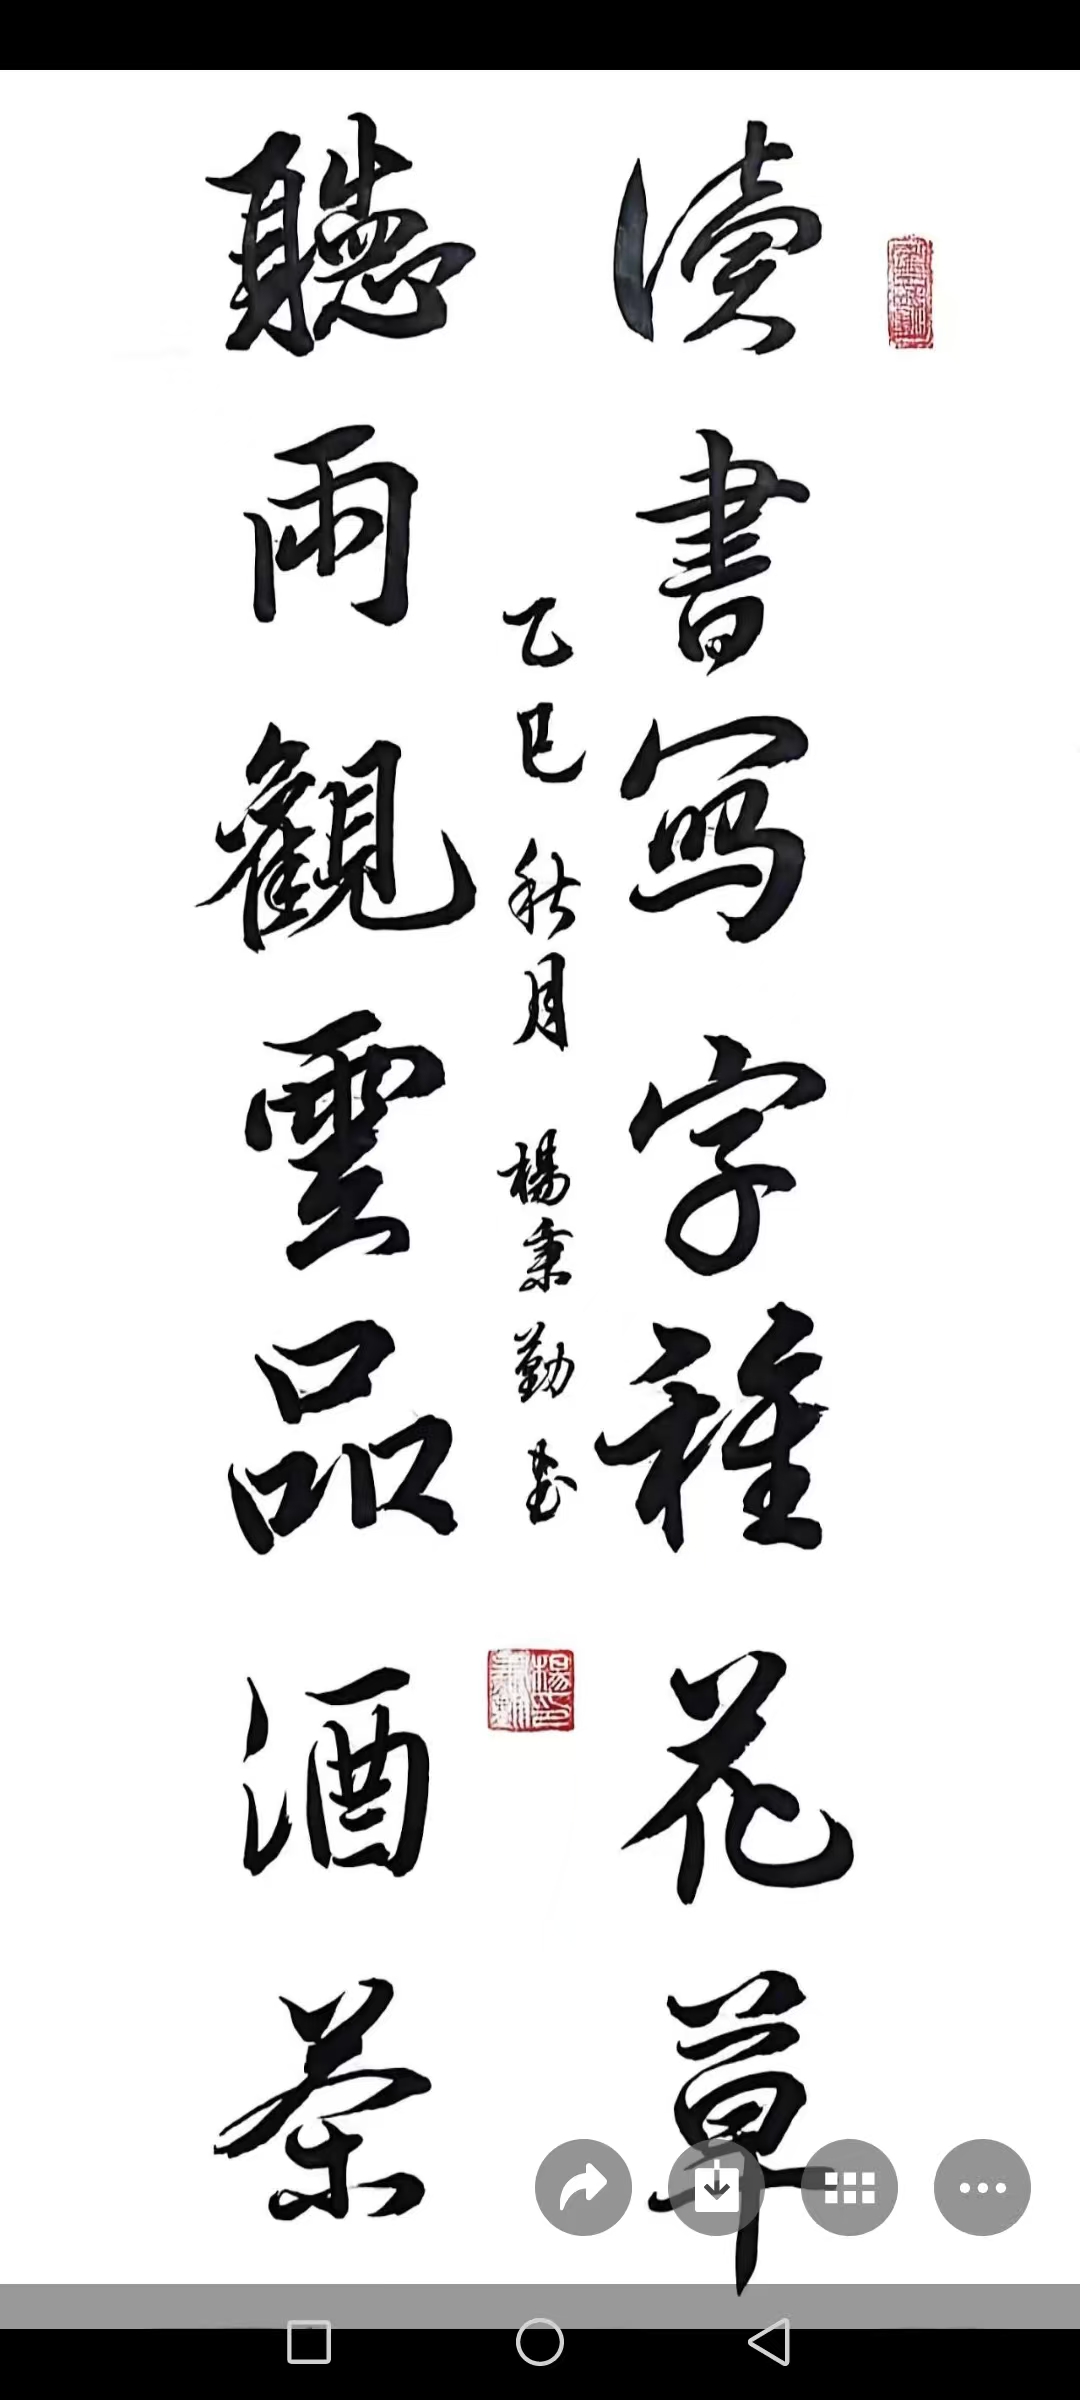 读書写字種花草
聽雨觀雲品酒茶
乙巳秋月 楊秉勤书